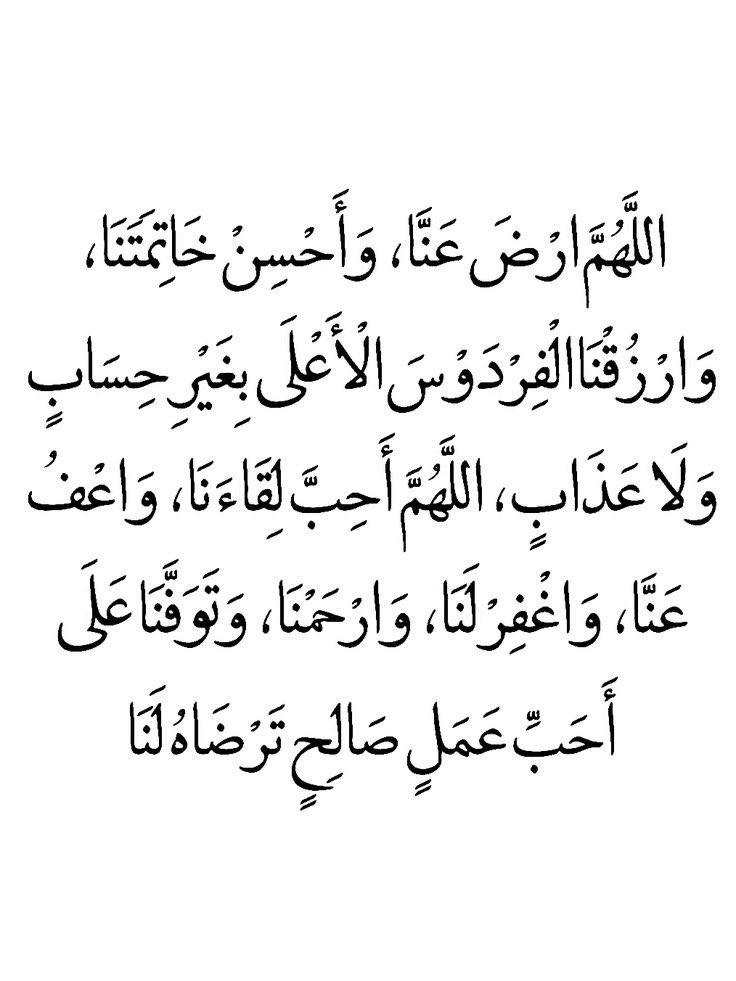 اللَّهُمَّ ارْضَ عَنَّا، وَأَحْسِنْ خَاتِمَتَنَا،
وَارْزُقْنَا الْفِرْدَوْسَ الْأَعْلَى بِغَيْرِ حِسَابٍ
وَلَا عَذَابٍ، اللَّهُمَّ أَحِبَّ لِقَاءَنَا، وَاعْفُ
عَنَّا، وَاغْفِرْ لَنَا، وَارْحَمْنَا، وَتَوَفَّنَا عَلَى
أَحَبِّ عَمَلٍ صَالِحٍ تَرْضَاهُ لَنَا